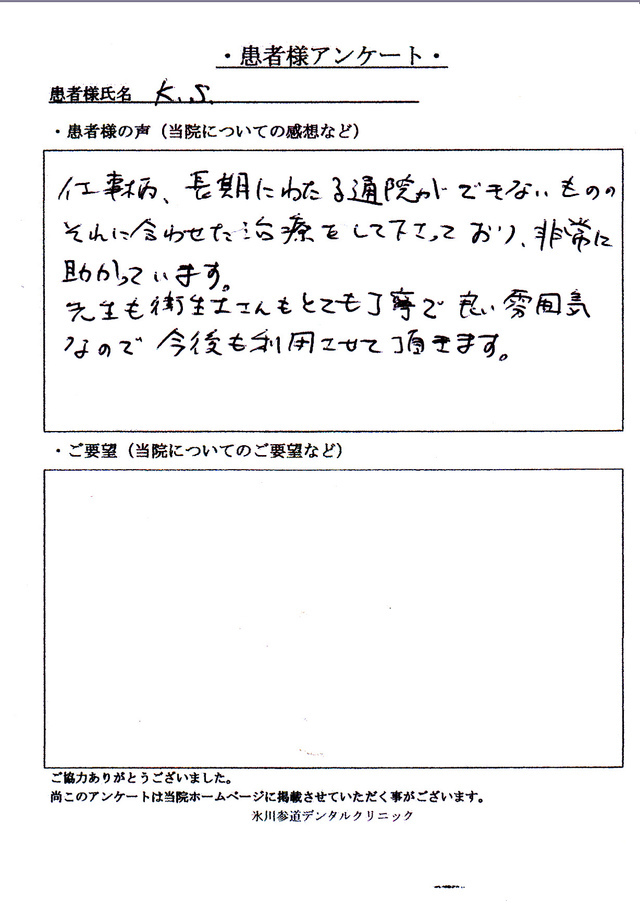 ・患者様アンケート・
患者様氏名 K.S.
・患者様の声（当院についての感想など）
仕事柄、長期にわたる通院ができないものの
それに合わせた治療をして下さっており、非常に
助かっています。
先生も衛生士さんもとても丁寧で良い雰囲気
なので今後も利用させて頂きます。
・ご要望（当院についてのご要望など）
ご協力ありがとうございました。
尚このアンケートは当院ホームページに掲載させていただく事がございます。
氷川参道デンタルクリニック